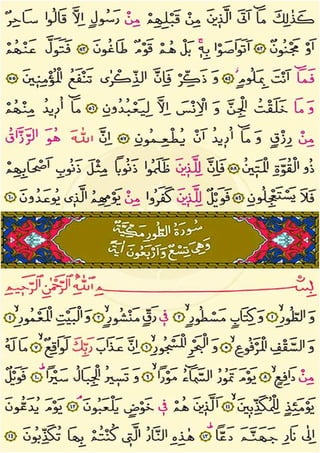 كَذٰلِكَ مَٓا اَتَى الَّذ۪ينَ مِنْ قَبْلِهِمْ مِنْ رَسُولٍ اِلَّا قَالُوا سَاحِرٌ
اَوْ مَجْنُونٌ ٥٢ اَتَوَاصَوْا بِه۪ۚ بَلْ هُمْ قَوْمٌ طَاغُونَ ٥٣ فَتَوَلَّ عَنْهُمْ
فَمَٓا اَنْتَ بِمَلُومٍ ٥٤ وَذَكِّرْ فَاِنَّ الذِّكْرٰى تَنْفَعُ الْمُؤْمِن۪ينَ ٥٥
وَمَا خَلَقْتُ الْجِنَّ وَالْاِنْسَ اِلَّا لِيَعْبُدُونِ ٥٦ مَٓا اُر۪يدُ مِنْهُمْ
مِنْ رِزْقٍ وَمَٓا اُر۪يدُ اَنْ يُطْعِمُونِ ٥٧ اِنَّ اللّٰهَ هُوَ الرَّزَّاقُ
ذُو الْقُوَّةِ الْمَت۪ينُ ٥٨ فَاِنَّ لِلَّذ۪ينَ ظَلَمُوا ذَنُوبًا مِثْلَ ذَنُوبِ اَصْحَابِهِمْ
فَلَا يَسْتَعْجِلُونِ ٥٩ فَوَيْلٌ لِلَّذ۪ينَ كَفَرُوا مِنْ يَوْمِهِمُ الَّذ۪ي يُوعَدُونَ ٦٠
سُورَةُ الطُّورِ مَكِّيَّةٌ
وَهِيَ تِسْعٌ وَاَرْبَعُونَ اٰيَةً
بِسْمِ اللّٰهِ الرَّحْمٰنِ الرَّح۪يمِ
وَالطُّورِۙ ١ وَكِتَابٍ مَسْطُورٍۙ ٢ ف۪ي رَقٍّ مَنْشُورٍۙ ٣ وَالْبَيْتِ الْمَعْمُورِۙ ٤
وَالسَّقْفِ الْمَرْفُوعِۙ ٥ وَالْبَحْرِ الْمَسْجُورِۙ ٦ اِنَّ عَذَابَ رَبِّكَ لَوَاقِعٌۙ ٧ مَا لَهُ
مِنْ دَافِعٍۙ ٨ يَوْمَ تَمُورُ السَّمَٓاءُ مَوْرًاۙ ٩ وَتَس۪يرُ الْجِبَالُ سَيْرًاۜ ١٠ فَوَيْلٌ
يَوْمَئِذٍ لِلْمُكَذِّب۪ينَۙ ١١ اَلَّذ۪ينَ هُمْ ف۪ي خَوْضٍ يَلْعَبُونَۢ ١٢ يَوْمَ يُدَعُّونَ
اِلٰى نَارِ جَهَنَّمَ دَعًّاۜ ١٣ هٰذِهِ النَّارُ الَّت۪ي كُنْتُمْ بِهَا تُكَذِّبُونَ ١٤